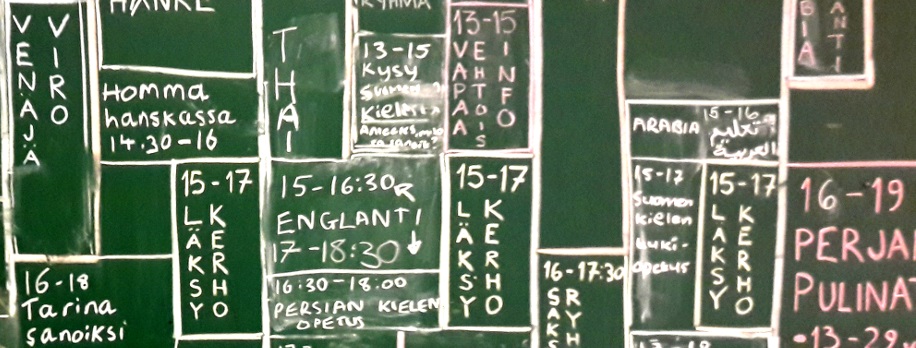 VENÄJÄ
VIRO
Homma
hanskassa
14.30-16
16-18
Tarina
sanoiksi
15-17
LÄKSY
KERHO
THAI
RYHMÄ
13-15
Kysy
Suomen
Kielestä
13-15
VEAPAA
EHTOIS
INFO
15-16:30
ENGLANTI
17-18:30
16:30-18:00
PERSIAN KIELEN
OPETUS
15-17
LÄKSY
KERHO
16-17:30
ARABIA
15-16
العربية
15-17
Suomen
kielen
luki-
opetus
15-17
LÄKSY
KERHO
BIA
ANTI
16-19
PERJA
PULINA